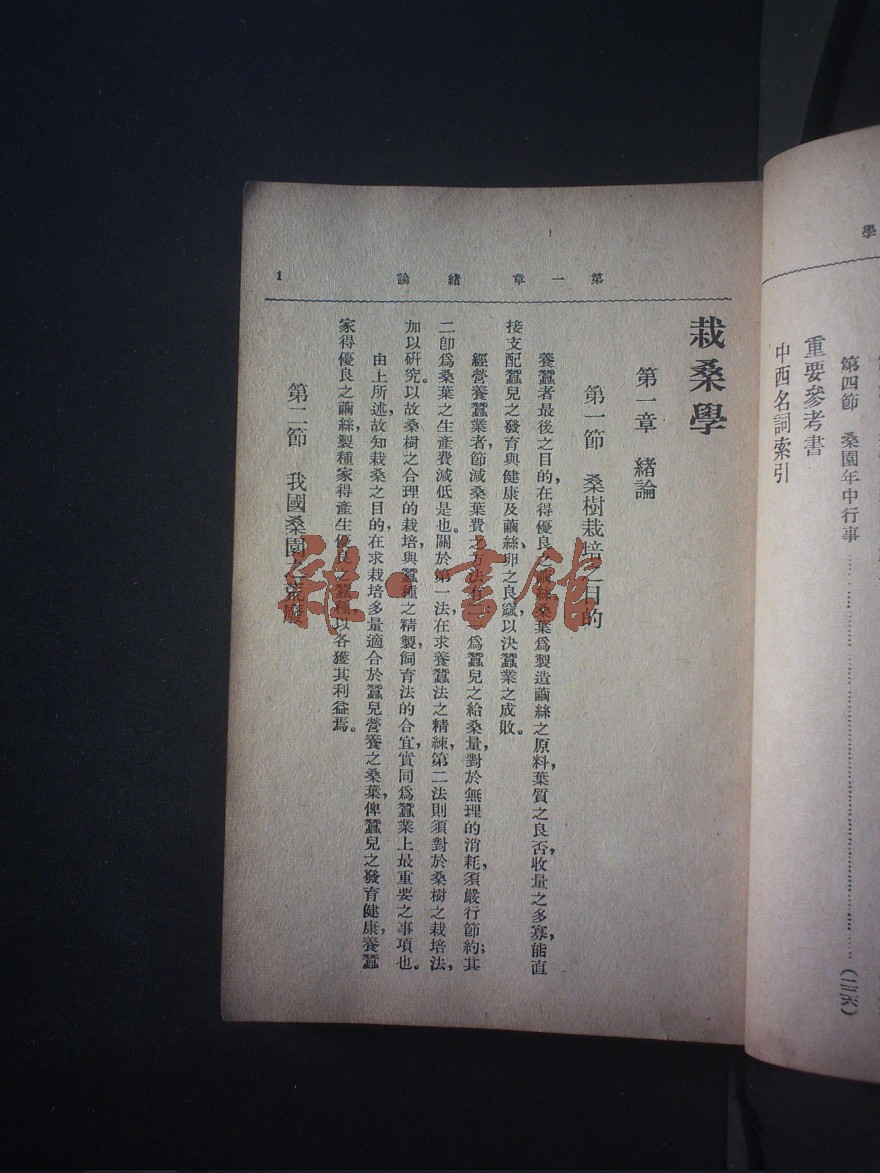 學
第四節 桑園年中行事……………………(二二六)
重要參考書
中西名詞索引
第一章 緒論 1
栽桑學
第一章 緒論
第一節 桑樹栽培之目的
養蠶者最後之目的，在得優良之繭絲，桑葉爲製造繭絲之原料，葉質之良否，收量之多寡，能直
接支配蠶兒之發育與健康及繭、絲、卵之良窳，以決蠶業之成敗。
經營養蠶業者，節減桑葉費之方法有爲蠶兒之給桑量，對於無理的消耗，須嚴行節約；其
二卽爲桑葉之生產費減低是也。關於第一法，在求養蠶法之精練，第二法則須對於桑樹之栽培法，
加以研究。以故桑樹之合理的栽培，與蠶種之精製，飼育法的合宜，實同爲蠶業上最重要之事項也。
由上所述，故知栽桑之目的，在求栽培多量適合於蠶兒營養之桑葉，俾蠶兒之發育健康，養蠶
家得優良之繭絲，製種家得產生優良之蠶種，以各獲其利益焉。
第二節 我國桑園之荒廢
雜·書館